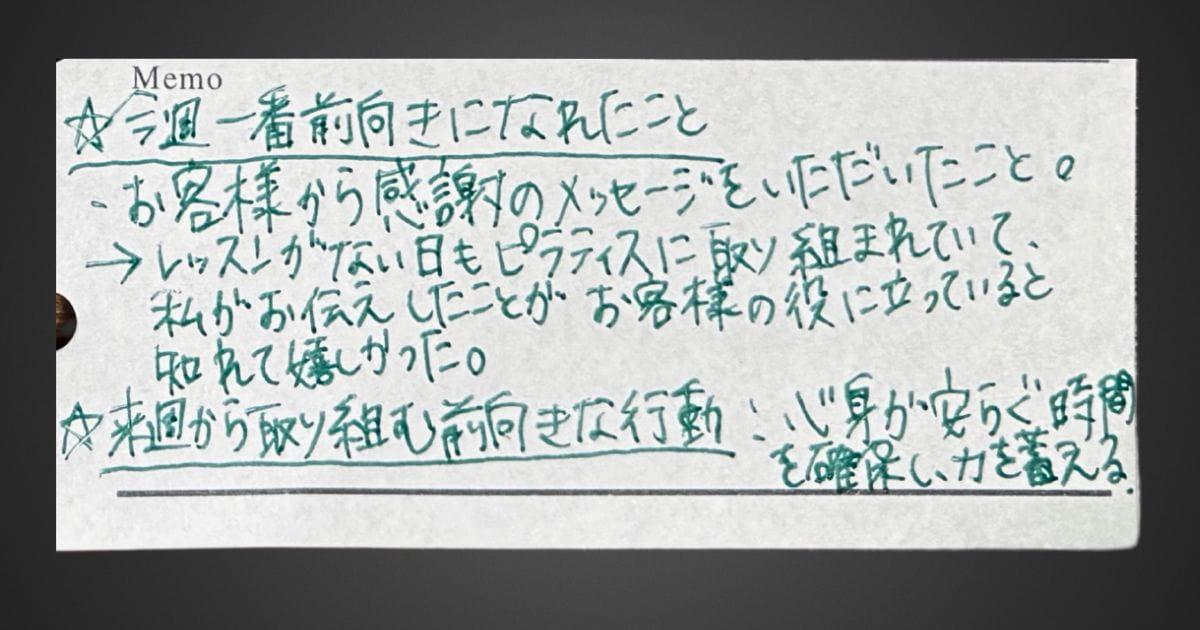 Memo
☆今週一番前向きになれたこと
・お客様から感謝のメッセージをいただいたこと。
→レッスンがない日もピラティスに取り組まれていて、
私がお伝えしたことがお客様の役に立っていると
知れて嬉しかった。
☆来週から取り組む前向きな行動：心身が安らぐ時間
を確保し、力を蓄える.